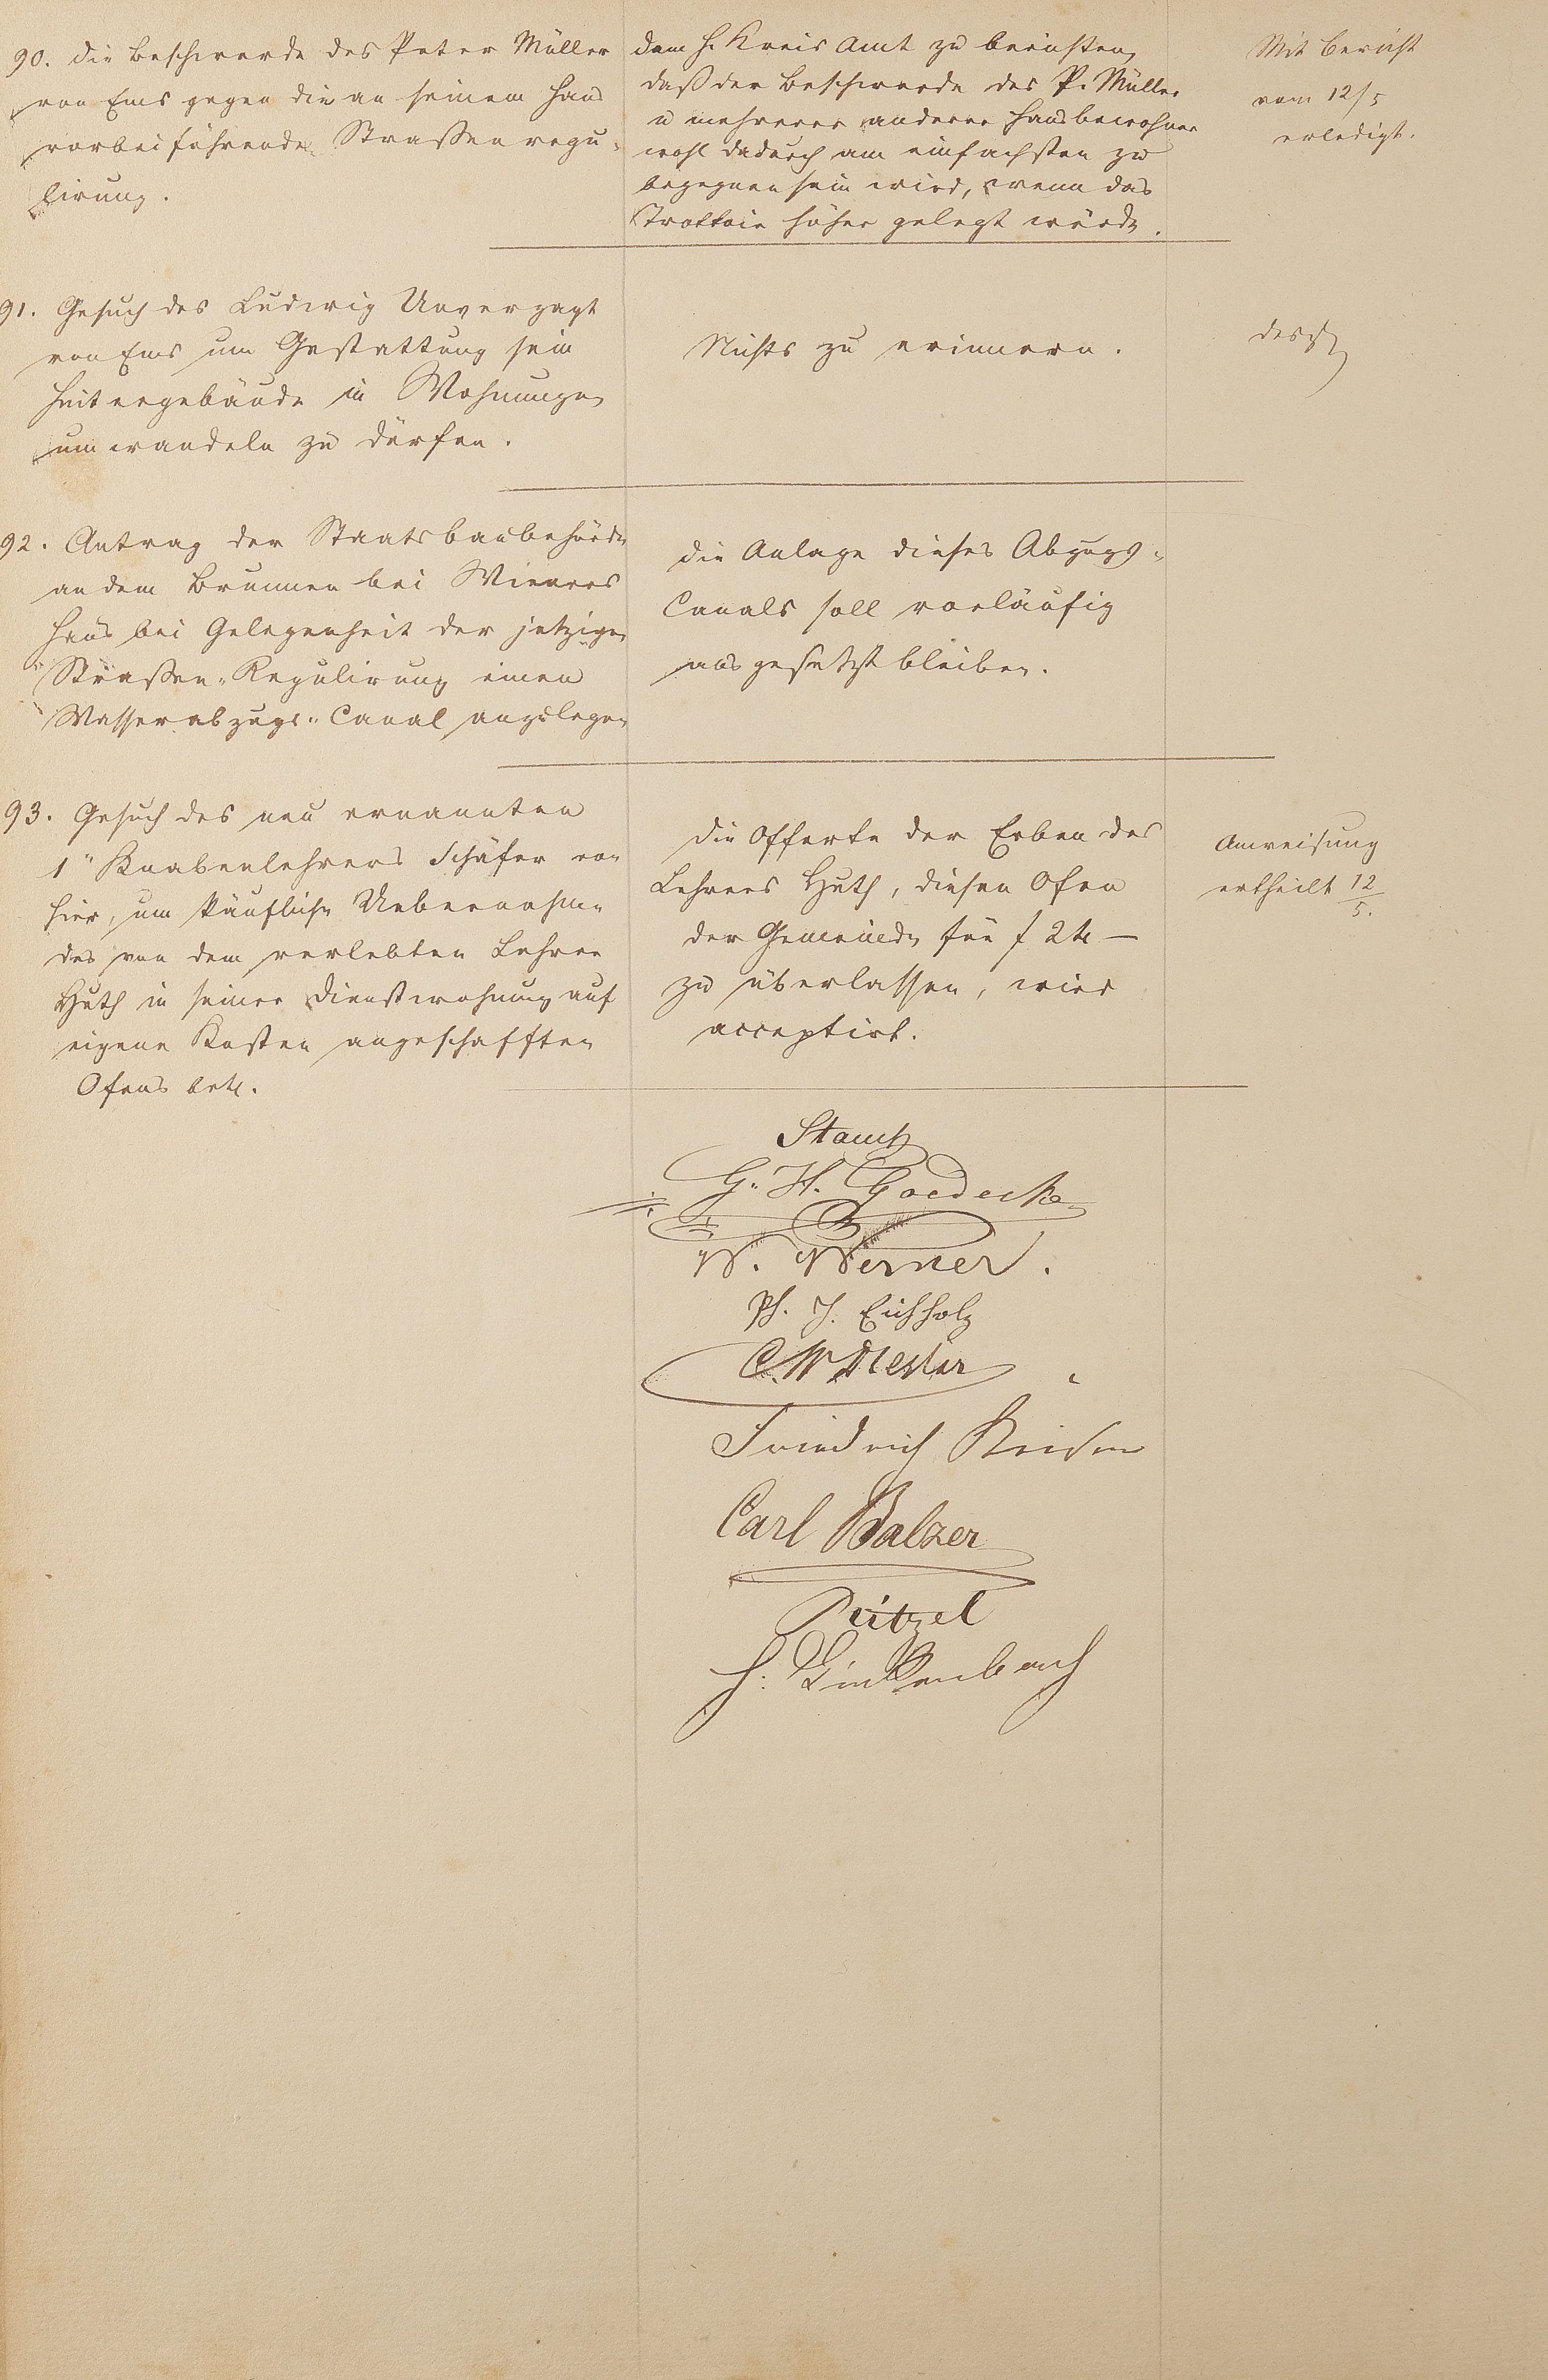 90. die Beschwerde des Peter Müller
von Ems gegen die an seinem Haus
vorbeiführende Straßenregu-
lirung.
dem H. Kreis Amt zu berichten,
daß der Beschwerde des P. Müller
u mehrerer anderer Hausbewohner
wohl dadurch am einfachsten zu
begegnen sein wird, wenn das
Trottoir höher gelegt würde.
Mit Bericht
vom 12/5
erledigt.
91. Gesuch des Ludwig Unverzagt
von Ems um Gestattung sein
Hintergebäude in Wohnungen
umwandeln zu dürfen.
Nichts zu erinnern.
92. Antrag der Staatsbaubehörde
an dem Brunnen bei Wieners
Haus bei Gelegenheit der jetzigen
Straßen-Regulirung einen
Wasserabzugs-Canal anzulegen
die Anlage dieses Abzugs-
Canals soll vorläufig
ausgesetzt bleiben.
93. Gesuch des neu ernannten
1" Knabenlehrers Schäfer von
hier, um käufliche Uebernahme
des von dem verlebten Lehrer
Huth in seiner Dienstwohnung auf
eigene Kosten angeschafften
Ofens
die Offerte der Erben des
Lehrers Huth, diesen Ofen
der Gemeinde für f
zu überlassen, wird
acceptirt.
Anweisung
ertheilt 12/5.
G. H. Goedecke
W. Werner.
Ph. J. Eichholz
C. W.
Friedrich
Carl Balzer
Peitzel
H. Linkenbach